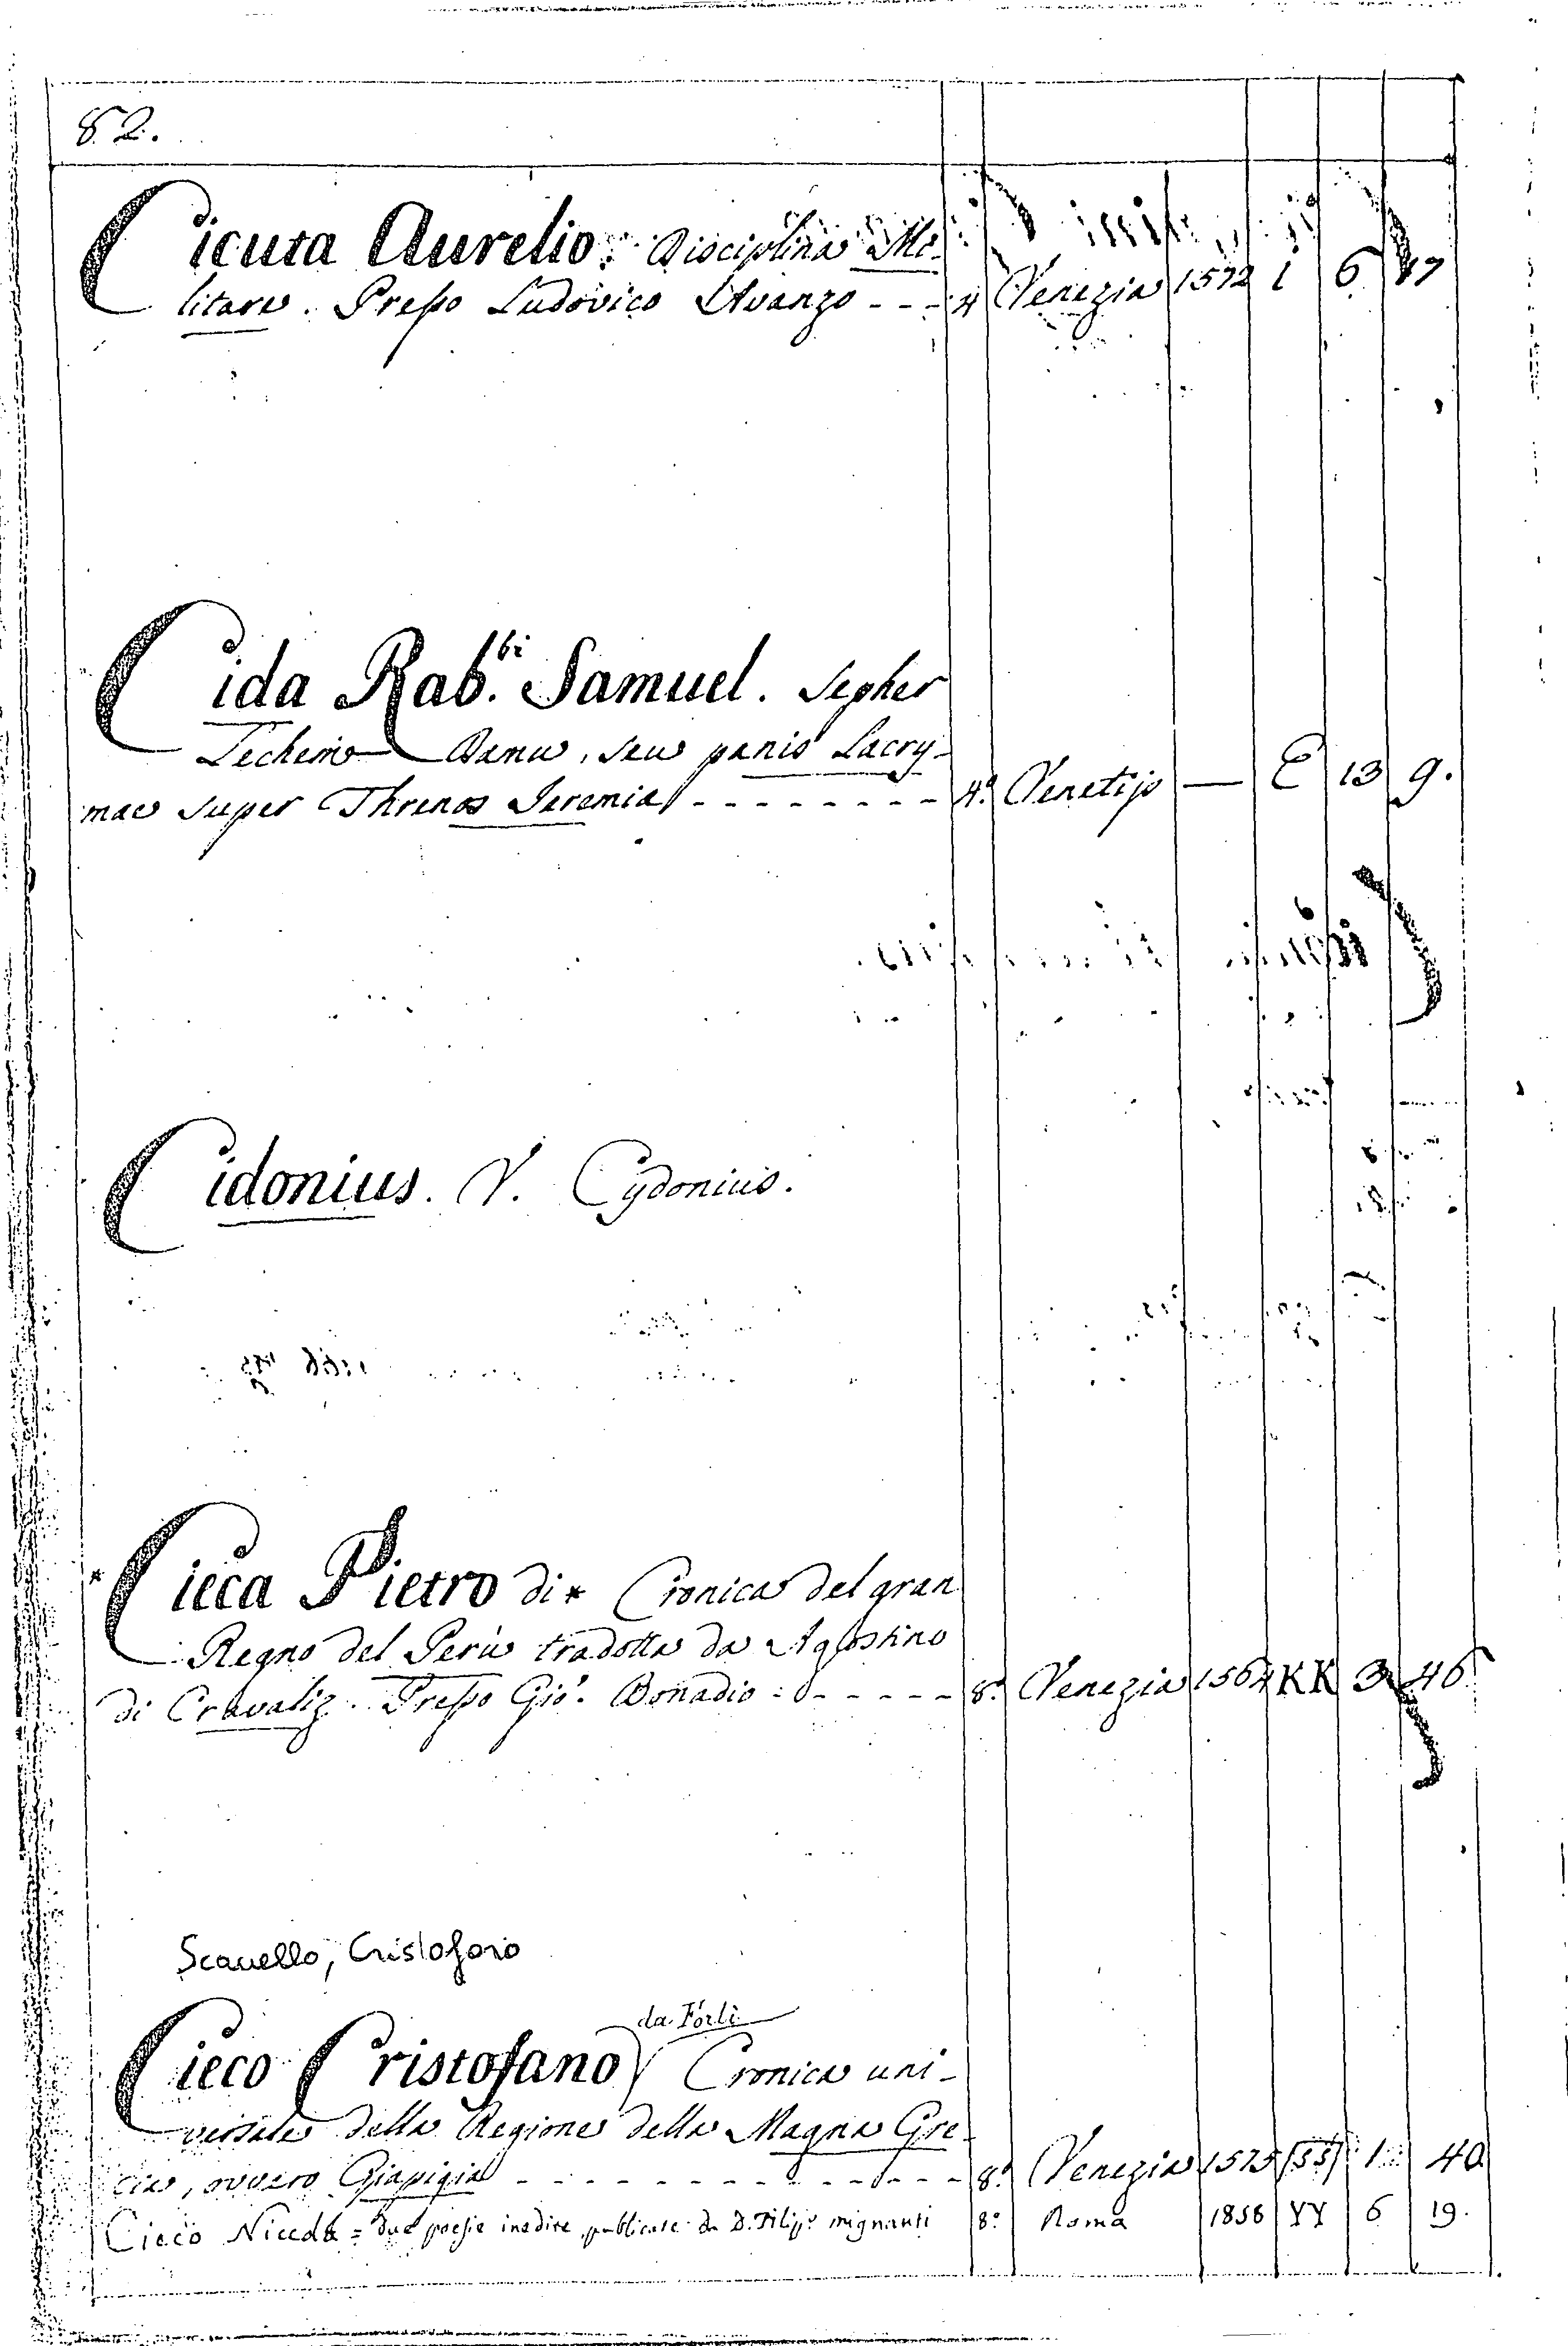 82.
Cicuta Aurelio. Disciplina Mi-
litare. Presso Ludovico Avanzo - - - 4 Venezia 1572 i 6 17
Cida Rab.bi Samuel. Sepher
Lechem Damu, seu panis Lacry-
mae super Threnos Jeremiae - - - - - - - - 4.o Venetijs — E 13 9.
Cidonius. V. Cydonius.
* Cieca Pietro di * Cronica del gran
Regno del Perù tradotta da Agostino
di Cravaliz. Presso Gio. Bonadio - - - - - - 8.o Venezia 1564 KK 3 46
Scanello, Cristoforo
da Forlì
Cieco Cristofano Cronica uni-
versale della Regione della Magna Gre-
cia, ovvero Giapigia - - - - - - - - - - - - - - - 8.o Venezia 1575 (SS) 1 40
Cieco Niccola = due poesie inedite pubblicate da D. Filip.o mignanti 8.o Roma 1858 YY 6 19.